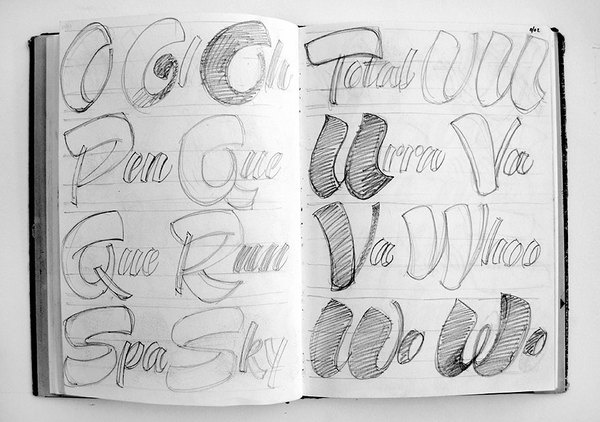 O Gl Oh
Pen Que
Que Run
Spa Sky
Total
Urra Va
Va Whoo
Wo Wo